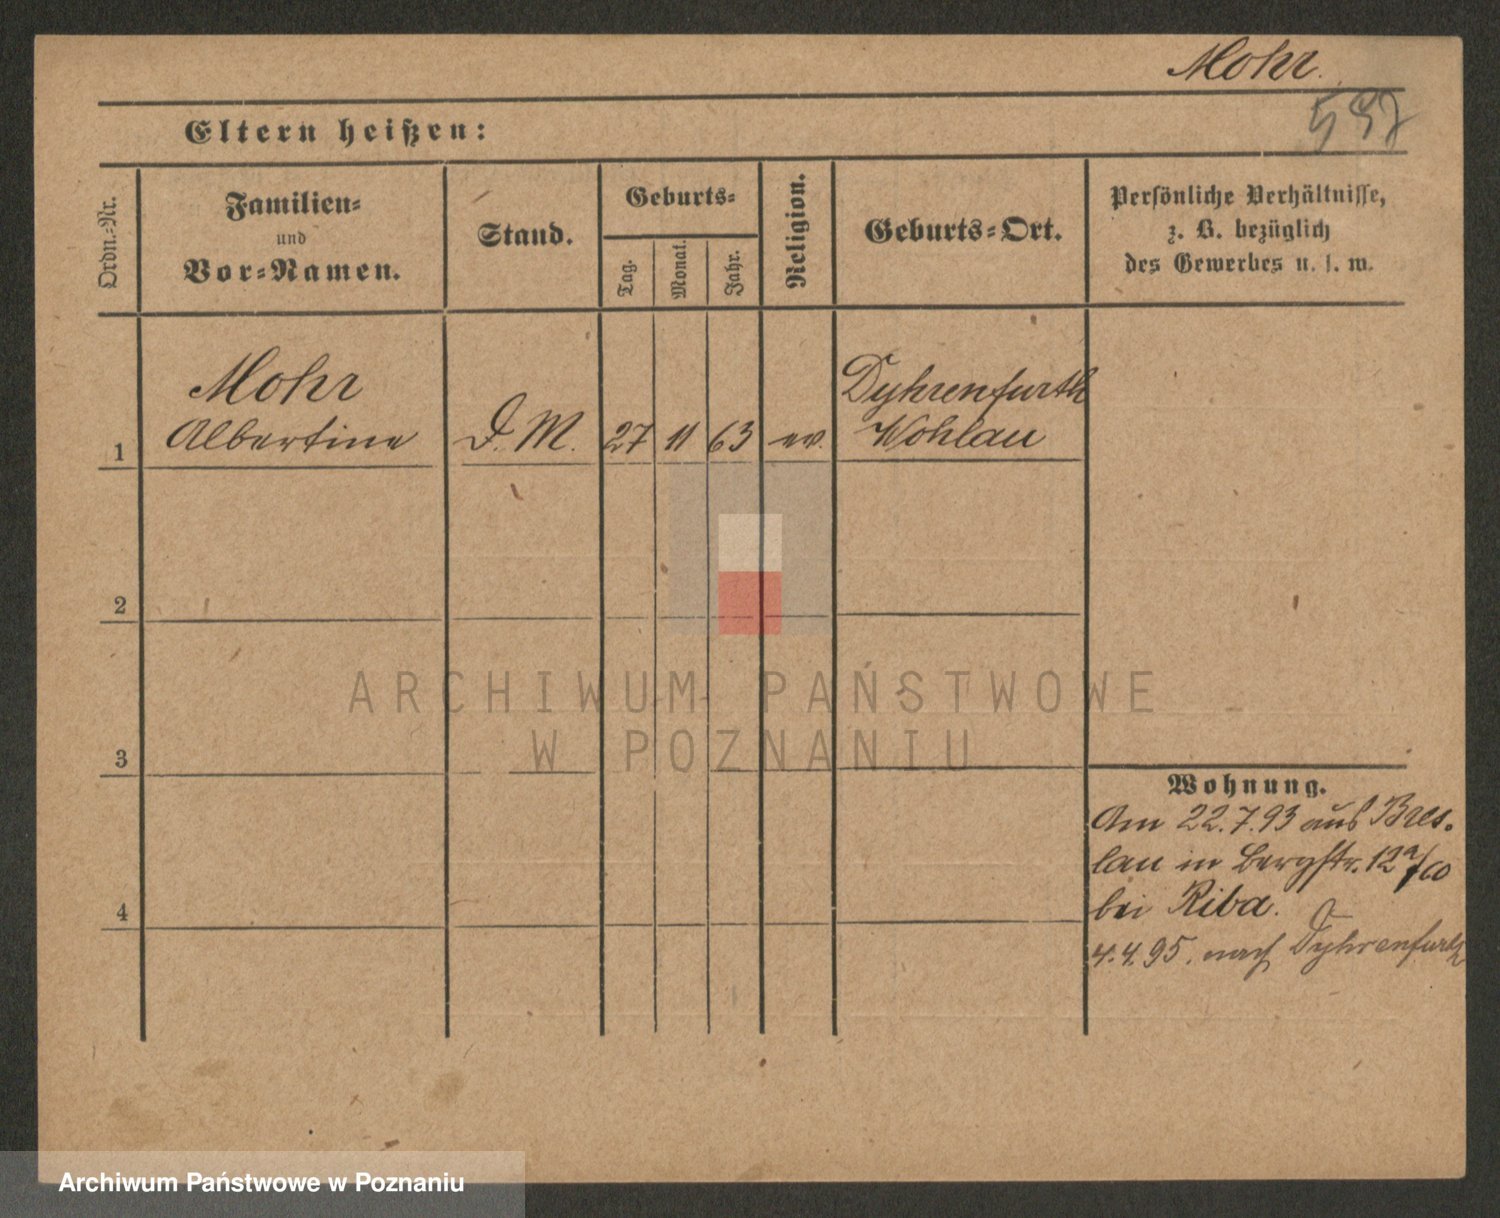 Mohr.
537
Eltern heißen:
Ordn.-Nr.
Familien-
und
Vor-Namen.
Stand.
Geburts-
Tag.
Monat.
Jahr.
Religion.
Geburts-Ort.
Persönliche Verhältnisse,
z. B. bezüglich
des Gewerbes u. s. w.
Mohr
Albertine
D. M.
27
11
63
ev.
Dyhrenfurth
Wohlau
1
2
3
4
Wohnung.
Am 22.7.93 aus Bres.
lau in Bergstr. 12a/
bei Riba.
4.4.95. nach Dyhrenfurth
ARCHIWUM PAŃSTWOWE
W POZNANIU
Archiwum Państwowe w Poznaniu